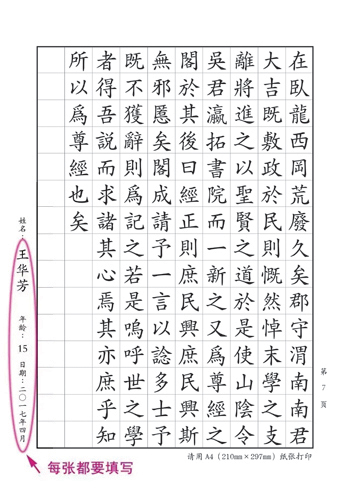 在臥龍西岡荒廢久矣郡守渭南南君
大吉既敷政於民則慨然悼末學之支
離將進之以聖賢之道於是使山陰令
吳君瀛拓書院而一新之又爲尊經之
閣於其後曰經正則庶民興庶民興斯
無邪慝矣閣成請予一言以諗多士予
既不獲辭則爲記之若是嗚呼世之學
者得吾說而求諸其心焉其亦庶乎知
所以爲尊經也矣
第7页
姓名：王华芳 年龄：15 日期：二〇一七年四月
请用A4（210mm×297mm）纸张打印
每张都要填写